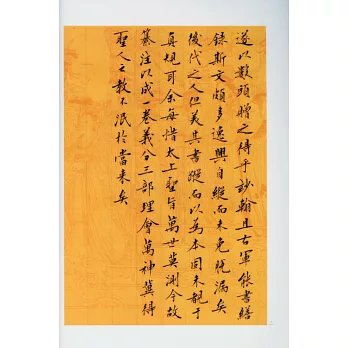 遂以数頭贈之得乎妙翰且古軍能書繕
録斯文頗多逸興自縱而未免脫漏矣
後代之人但美其書蹤而以為本固未覩于
真規耳余每惜太上聖旨萬世莫測今故
纂注以成一卷義分三部理會萬神冀得
聖人之教不泯於當來矣